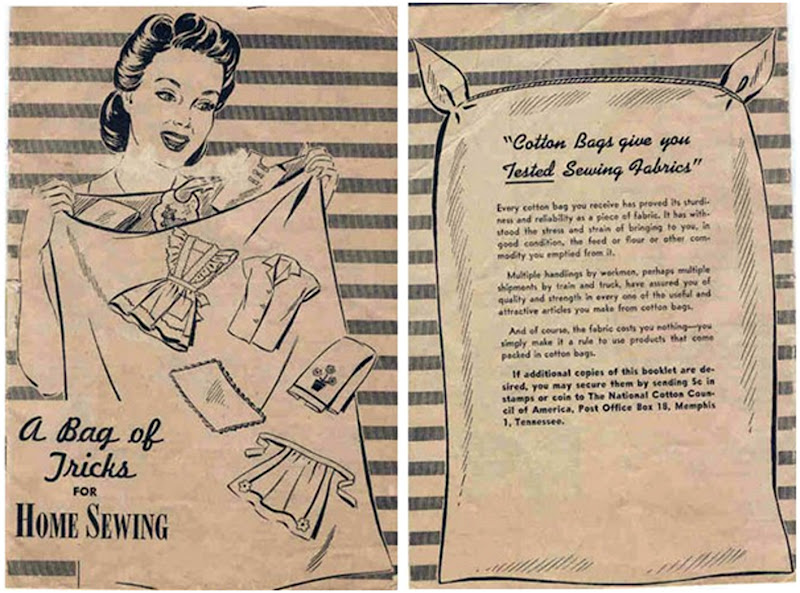 A Bag of
Tricks
FOR
HOME SEWING
"Cotton Bags give you
Tested Sewing Fabrics"
Every cotton bag you receive has proved its sturdi-
ness and reliability as a piece of fabric. It has with-
stood the stress and strain of bringing to you, in
good condition, the feed or flour or other com-
modity you emptied from it.
Multiple handlings by workmen, perhaps multiple
shipments by train and truck, have assured you of
quality and strength in every one of the useful and
attractive articles you make from cotton bags.
And of course, the fabric costs you nothing—you
simply make it a rule to use products that come
packed in cotton bags.
If additional copies of this booklet are de-
sired, you may secure them by sending 5c in
stamps or coin to The National Cotton Coun-
cil of America, Post Office Box 18, Memphis
1, Tennessee.